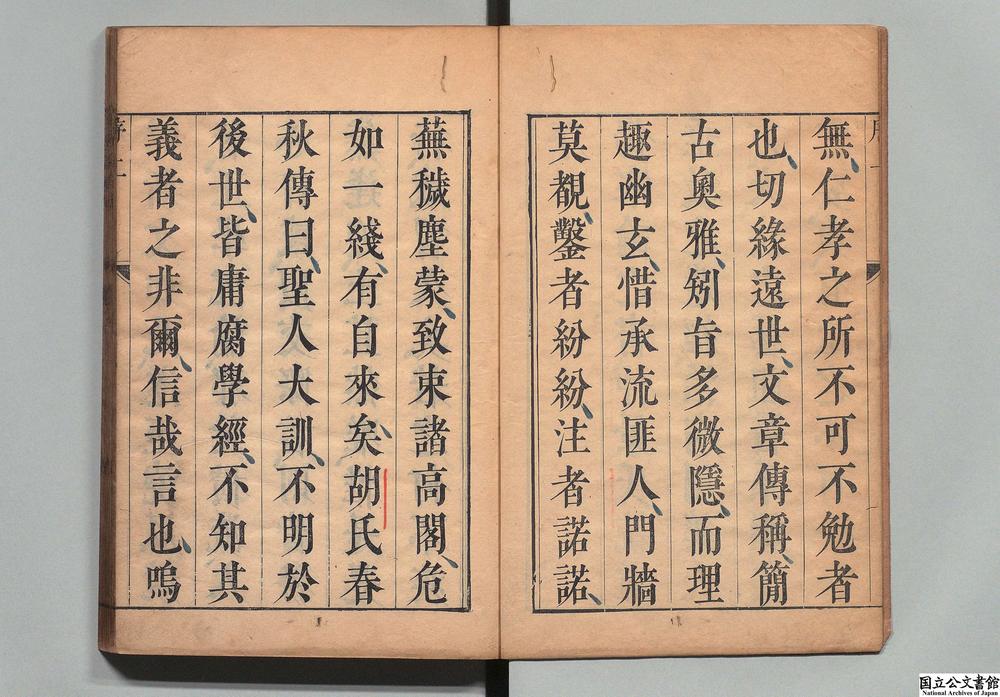 無、仁孝之所不可不勉者
也、切緣遠世、文章傳稱、簡
古奥雅、矧旨多微隱、而理
趣幽玄、惜承流匪人、門牆
莫覩、鑿者紛紛、注者諾諾、
蕪穢塵蒙、致束諸高閣、危
如一綫、有自來矣、胡氏春
秋傳曰、聖人大訓、不明於
後世、皆庸腐學經、不知其
義者之非爾、信哉言也、嗚
国立公文書館
National Archives of Japan